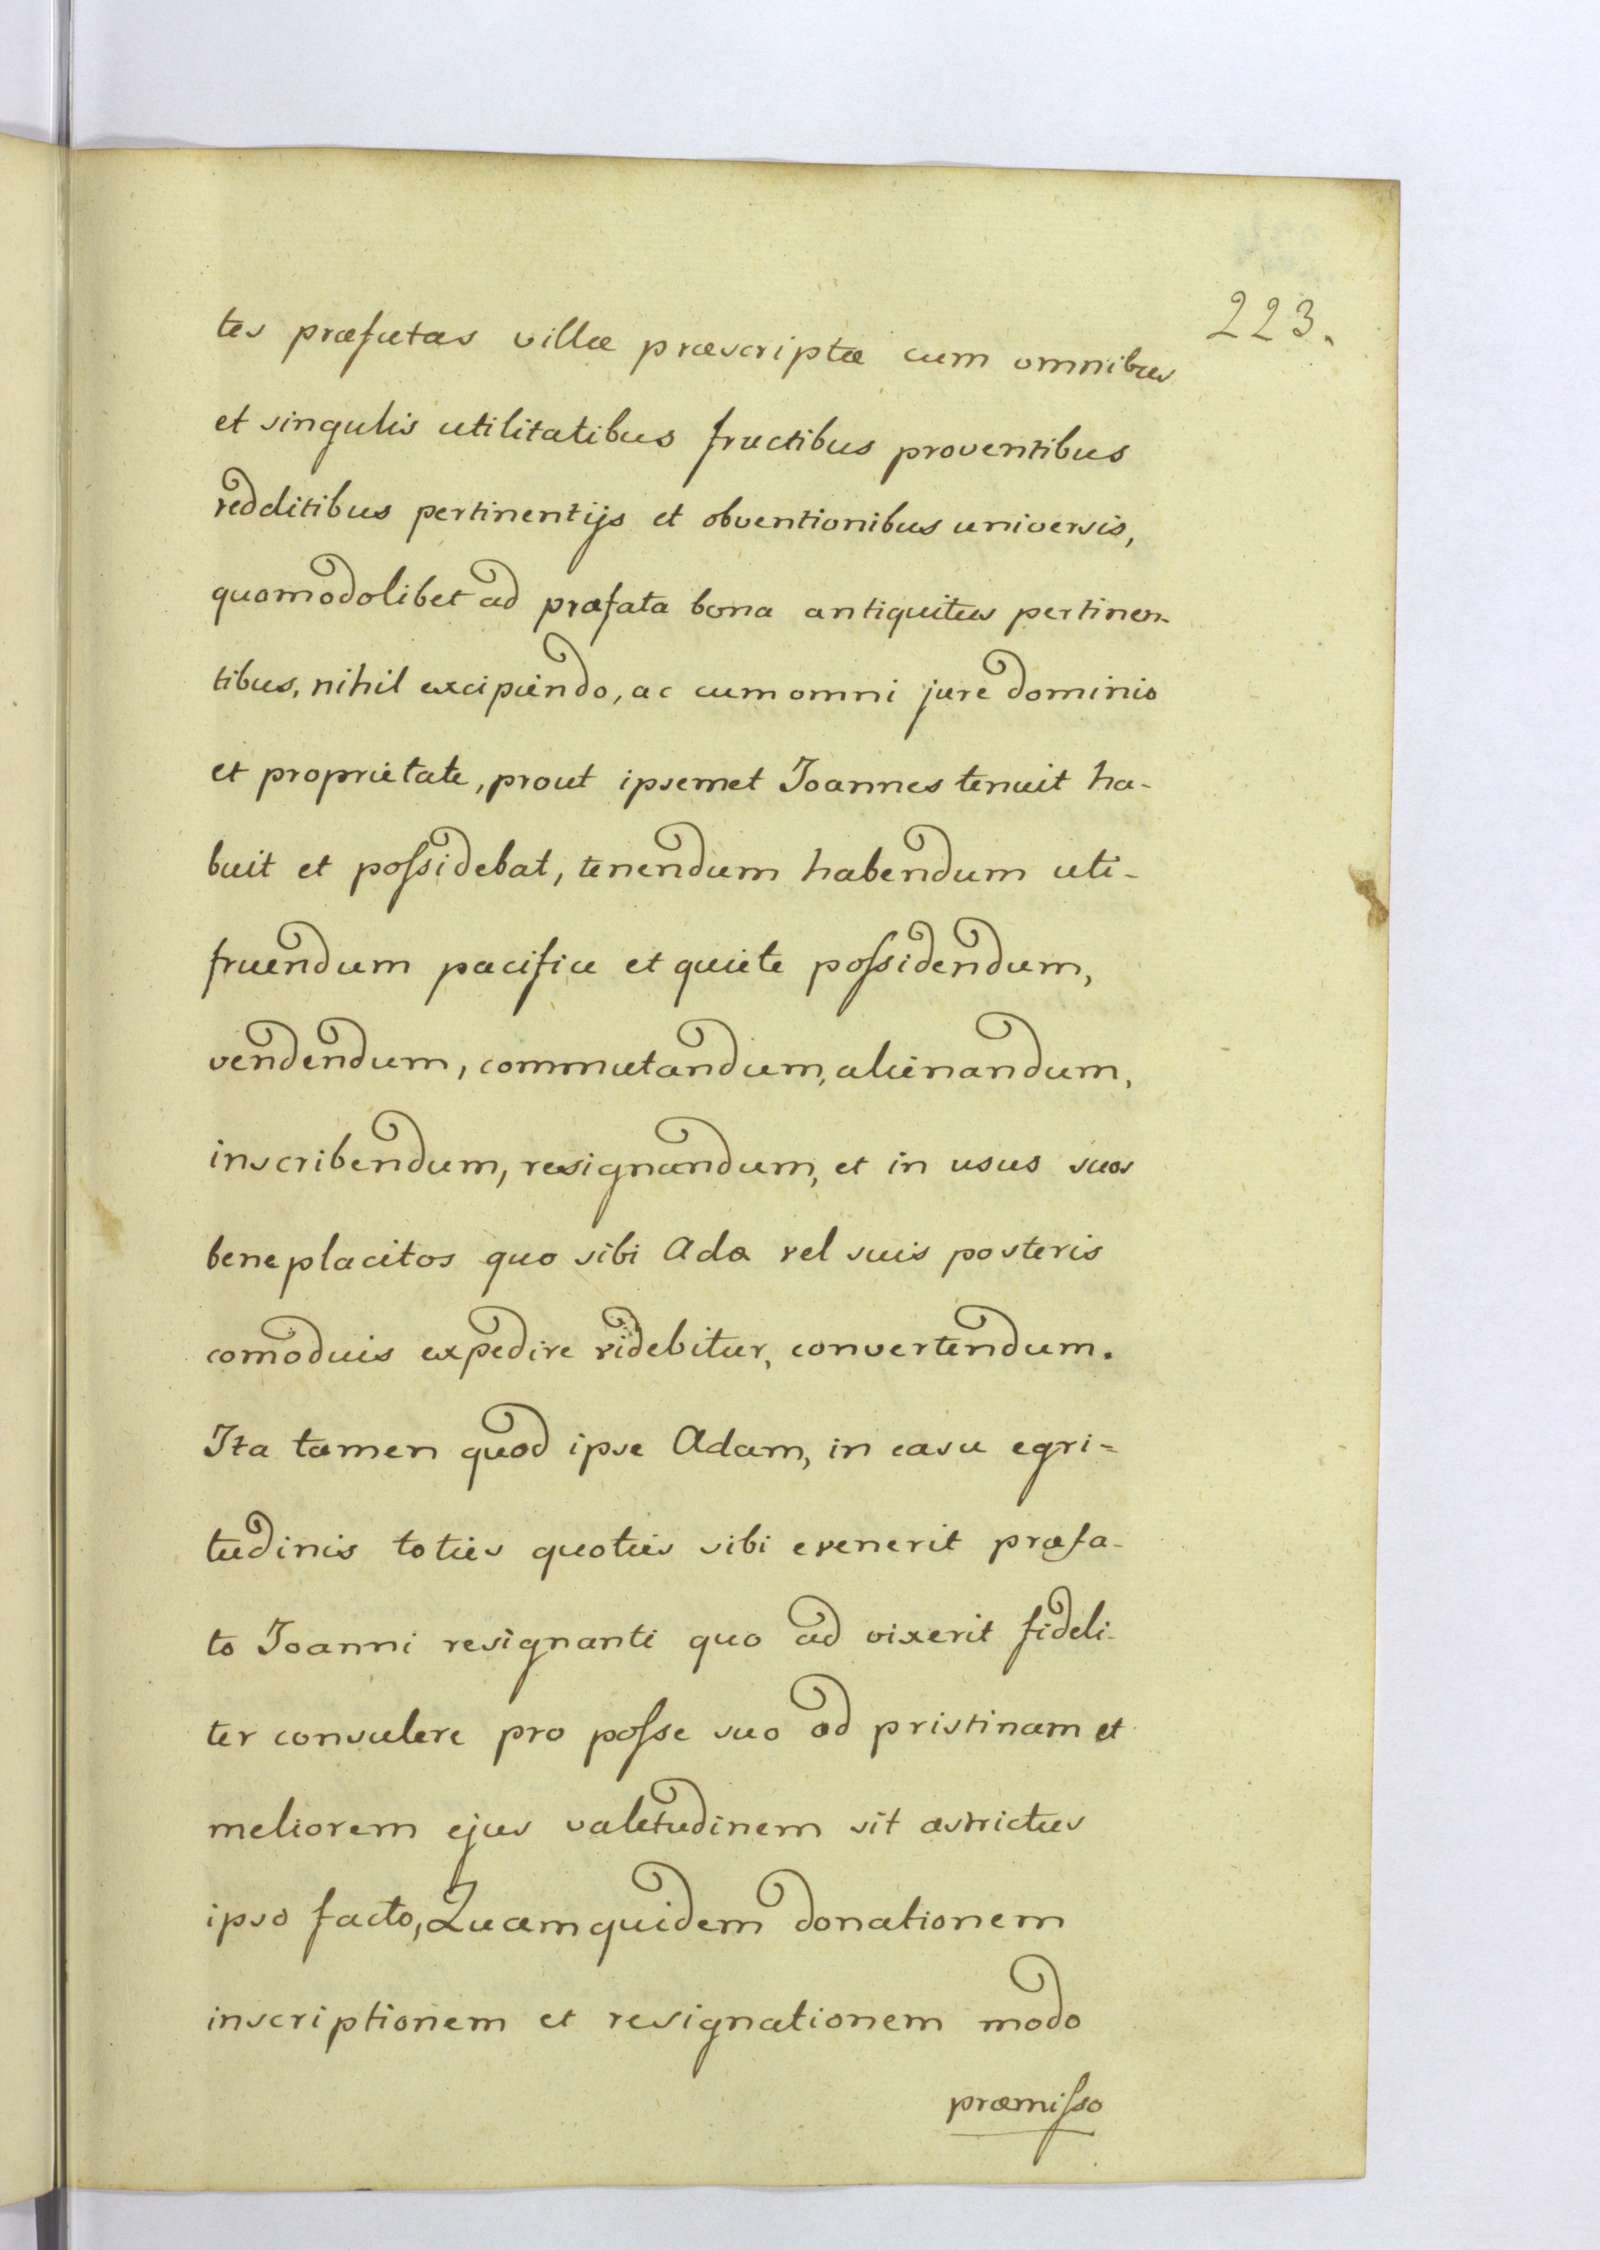 223.
tes præfatas villæ præscriptæ cum omnibus
et singulis utilitatibus fructibus proventibus
redditibus pertinentijs et obventionibus universis,
quomodolibet ad præfata bona antiquitus pertinen-
tibus, nihil excipiendo, ac cum omni jure dominio
et proprietate, prout ipsemet Joannes tenuit ha-
buit et possidebat, tenendum habendum uti-
fruendum pacifice et quiete possidendum,
vendendum, commutandum, alienandum,
inscribendum, resignandum, et in usus suos
beneplacitos quo sibi Adæ vel suis posteris
comoduis expedire videbitur, convertendum.
Ita tamen quod ipse Adam, in casu egri-
tudinis toties quoties sibi evenerit præfa-
to Joanni resignanti quo ad vixerit fideli-
ter consulere pro posse suo ad pristinam et
meliorem ejus valetudinem sit astrictus
ipso facto, Quam quidem donationem
inscriptionem et resignationem modo
præmisso